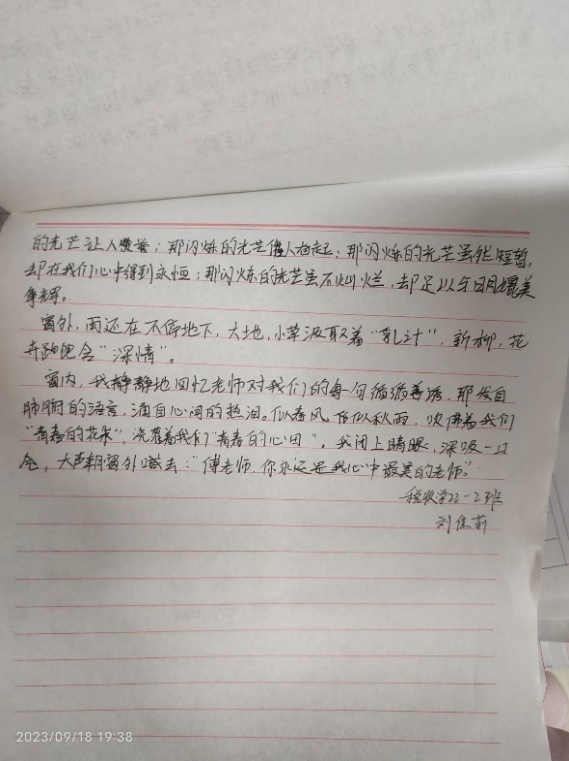 的光芒让人赞誉；那闪烁的光芒催人奋起；那闪烁的光芒虽然短暂，
却在我们心中得到永恒；那闪烁的光芒虽不灿烂，却足以与日月媲美
争辉。
窗外，雨还在不停地下，大地，小草汲取着“乳汁”，新柳，花
卉饱含“深情”。
窗内，我静静地回忆老师对我们的每一句循循善诱，那发自
肺腑的语言，涌自心间的热泪，似春风，恰似秋雨，吹拂着我们
“青春的花朵”，浇灌着我们“青春的心田”。我闭上睛眼，深吸一口
气，大声朝窗外喊去：“傅老师，你永远是我心中最美的老师。”
税收学22-2班
刘佳莉
2023/09/18 19:38